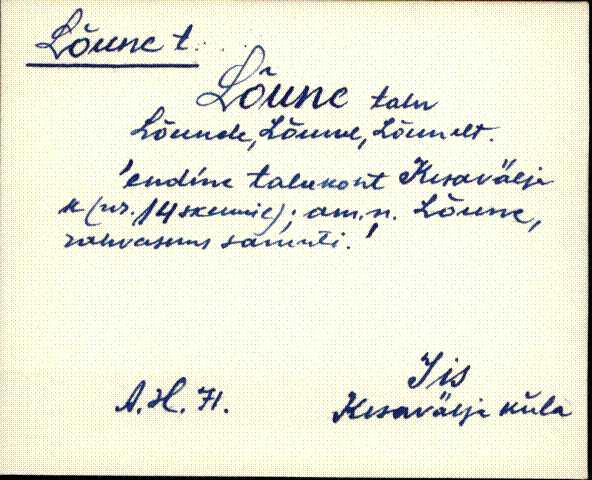 Lõune t.
Lõune talu
Lõunele, Lõunel, Lõunelt.
'endine talukoht Kesavälja
k (nr. 14 skeemil); am.n. Lõune,
rahvasuus samuti.'
A.H. 71.
Jis
Kesavälja küla